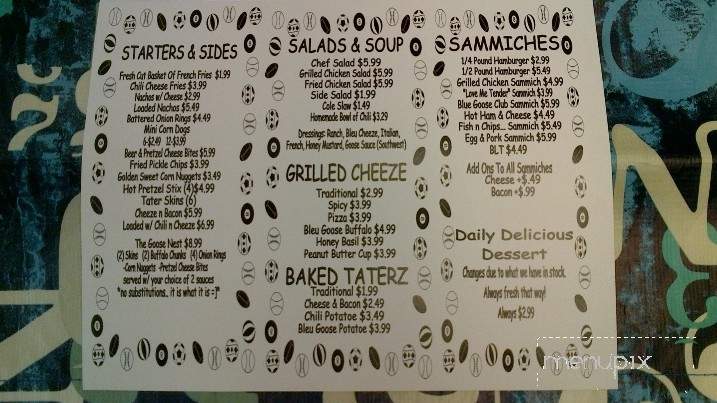 STARTERS & SIDES
Fresh Cut Basket Of French Fries $1.99
Chili Cheese Fries $3.99
Nachos w/ Cheese $2.99
Loaded Nachos $5.49
Battered Onion Rings $4.49
Mini Corn Dogs
6-$2.49 12-$3.99
Beer & Pretzel Cheese Bites $5.99
Fried Pickle Chips $3.99
Golden Sweet Corn Nuggets $3.49
Hot Pretzel Stix (4)$4.99
Tater Skins (6)
Cheeze n Bacon $5.99
Loaded w/ Chili n Cheeze $6.99
The Goose Nest $8.99
(2) Skins (2) Buffalo Chunks (4) Onion Rings
-Corn Nuggets -Pretzel Cheese Bites
served w/ your choice of 2 sauces
"no substitutions.. it is what it is =]"
SALADS & SOUP
Chef Salad $5.99
Grilled Chicken Salad $5.99
Fried Chicken Salad $5.99
Side Salad $1.99
Cole Slaw $1.49
Homemade Bowl of Chili $3.29
Dressings: Ranch, Bleu Cheeze, Italian,
French, Honey Mustard, Goose Sauce (Southwest)
GRILLED CHEEZE
Traditional $2.99
Spicy $3.99
Pizza $3.99
Bleu Goose Buffalo $4.99
Honey Basil $3.99
Peanut Butter Cup $3.99
BAKED TATERZ
Traditional $1.99
Cheese & Bacon $2.49
Chili Potatoe $3.49
Bleu Goose Potatoe $3.99
SAMMICHES
1/4 Pound Hamburger $2.99
1/2 Pound Hamburger $5.49
Grilled Chicken Sammich $4.99
"Love Me Tender" Sammich $3.99
Blue Goose Club Sammich $5.99
Hot Ham & Cheese $4.49
Fish n Chips... Sammich $5.49
Egg & Pork Sammich $5.99
BLT $4.49
Add Ons To All Sammiches
Cheese +$.49
Bacon +$.99
Daily Delicious
Dessert
Changes due to what we have in stock.
Always fresh that way!
Always $2.99
menupix